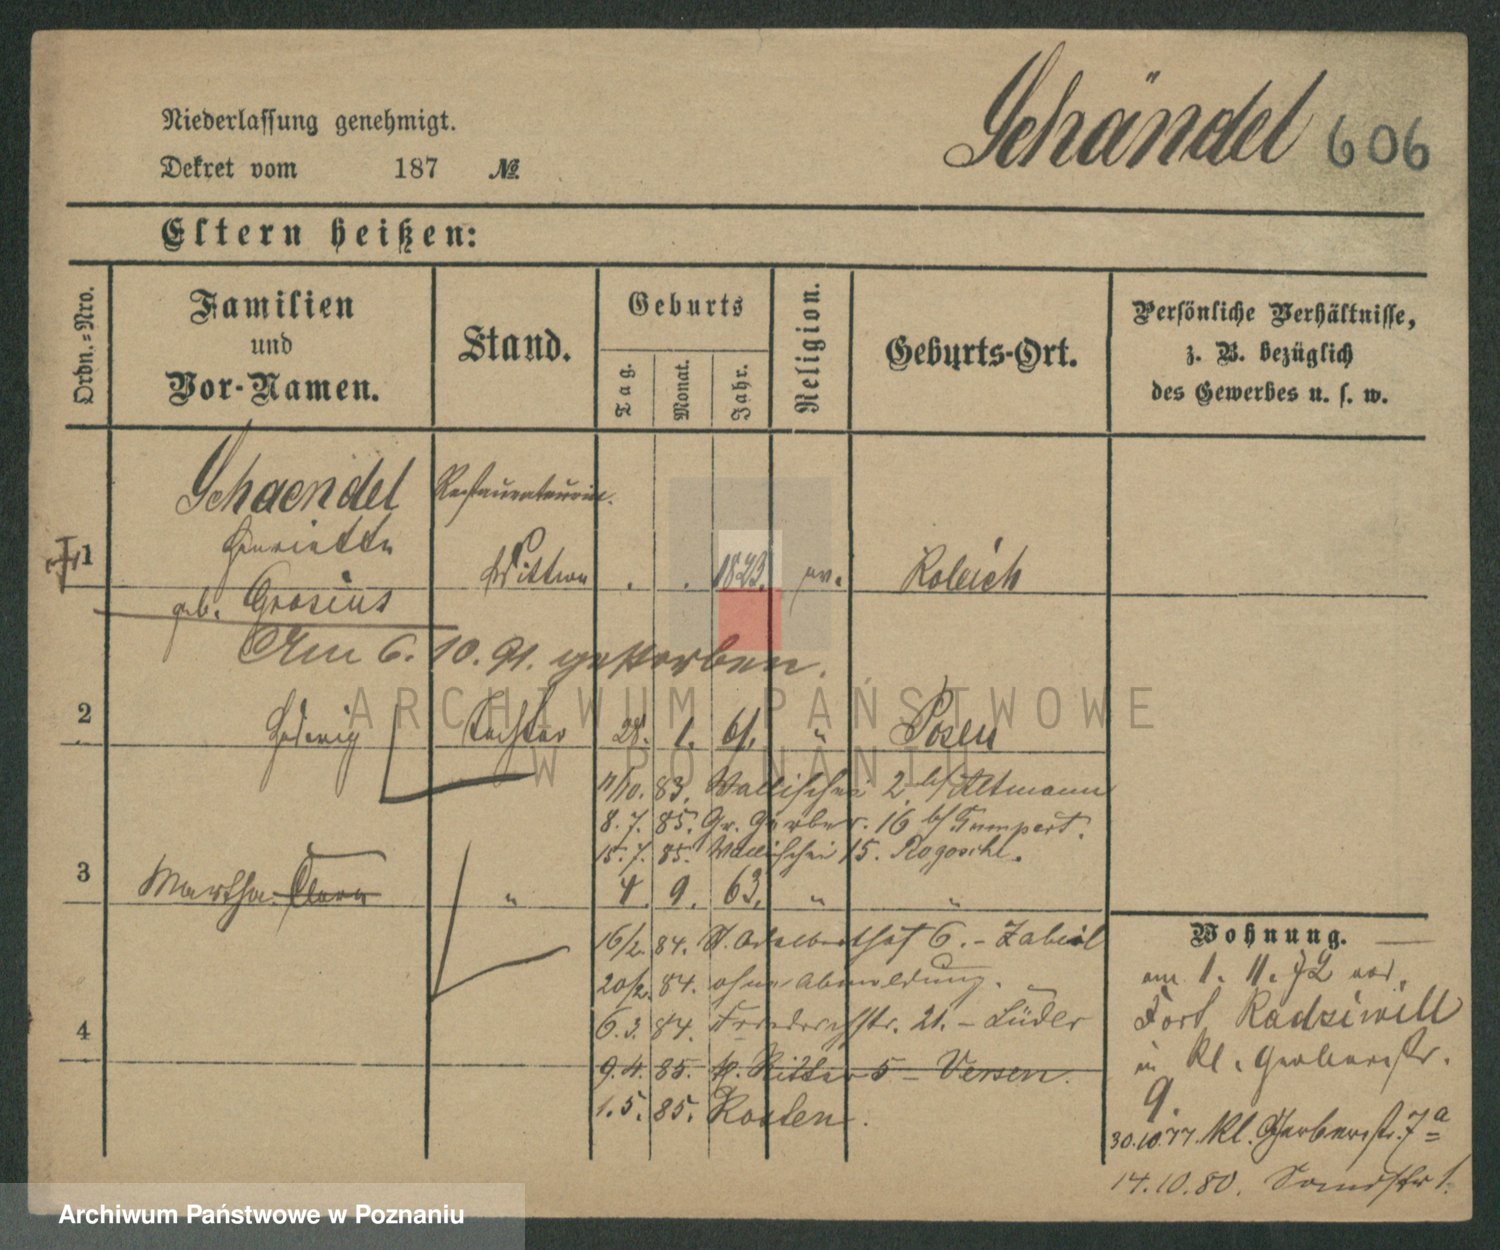 Schändel 606
Niederlassung genehmigt.
Dekret vom 187 №
Eltern heißen:
Ordn.=Nro.
Familien
und
Vor-Namen.
Stand.
Geburts
Tag.
Monat.
Jahr.
Religion.
Geburts-Ort.
Persönliche Verhältnisse,
z. B. bezüglich
des Gewerbes u. s. w.
1
Schaendel
Henriette
geb. Grosius
Restaurateurin.
Wittwe . . 1823. ev. Kobeich
Am 6. 10. 91. gestorben.
2
Hedwig Tochter 28. 1. 61. " Posen
11/10. 83. Wallischei 2 b/ Altmann
8. 7. 85. Gr. Gerber. 16 b/ Gumpert.
15. 7. 85. Wallischei 15. Rogoschl.
3
Martha Clara " 4. 9. 63. " "
16/2. 84. St. Adalberthof 6. - Zabel
20/2. 84. ohne Abmeldung.
4
6. 3. 84. Friedrichstr. 21. - Lüder
9. 4. 85. Kl. Ritter 5 - Versen.
1. 5. 85. Kosten.
Wohnung.
am 1. 11. 72 von
Fort Radziwill
in Kl. Gerberstr.
9.
30.10.77. Kl. Gerberstr. 7a
14.10.80. 1.
ARCHIWUM PAŃSTWOWE
W POZNANIU
Archiwum Państwowe w Poznaniu